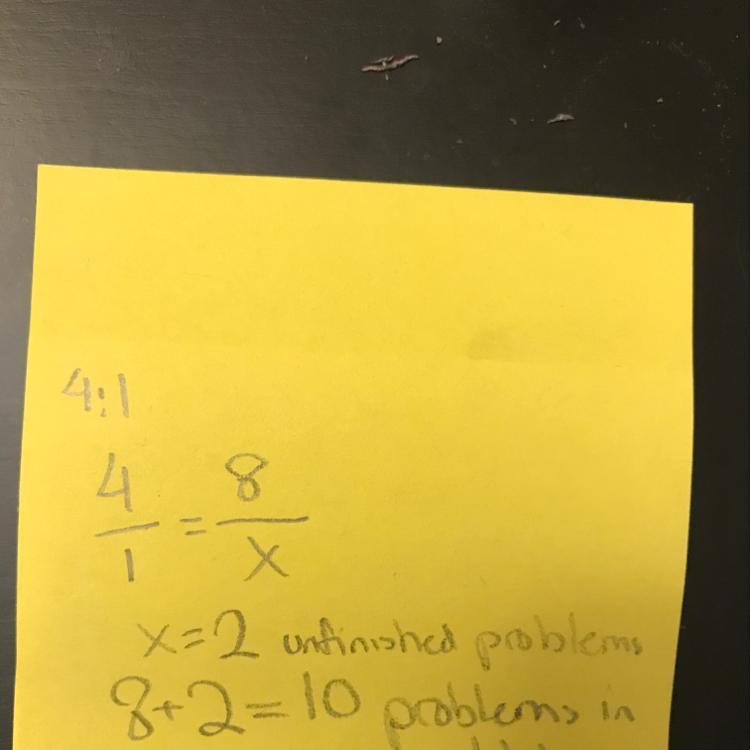 4:1
4/1 = 8/x
x=2 unfinished problems
8+2=10 problems in